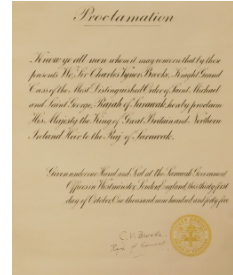 Proclamation
Know ye all men whom it may concern that by these
presents We, Sir Charles Vyner Brooke, Knight Grand
Cross of the Most Distinguished Order of Saint Michael
and Saint George, Rajah of Sarawak, hereby proclaim
His Majesty the King of Great Britain and Northern
Ireland Heir to the Raj of Sarawak.
Given under our Hand and Seal at the Sarawak Government
Offices in Westminster, London England, this thirty first
day of October, One thousand nine hundred and forty five
C. V. Brooke
Rajah of Sarawak